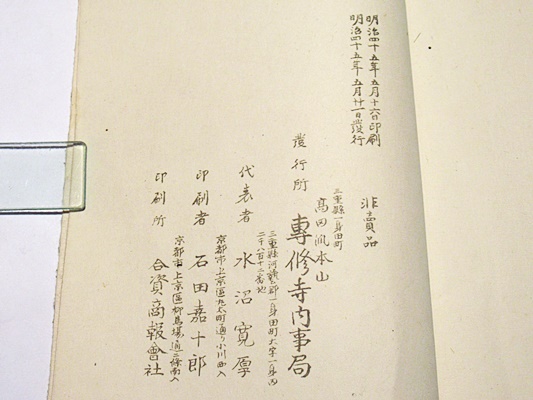 明治四十五年五月十六日印刷
明治四十五年五月廿一日發行
非賣品
三重縣一身田町
高田派本山
發行所 專修寺内事局
三重縣河藝郡一身田町大字一身田
二千八百十二番地
代表者 水沼寛厚
京都市上京區丸太町通り小川西入
印刷者 石田嘉十郎
京都市上京區柳馬場通三條南入
印刷所 合資商報會社